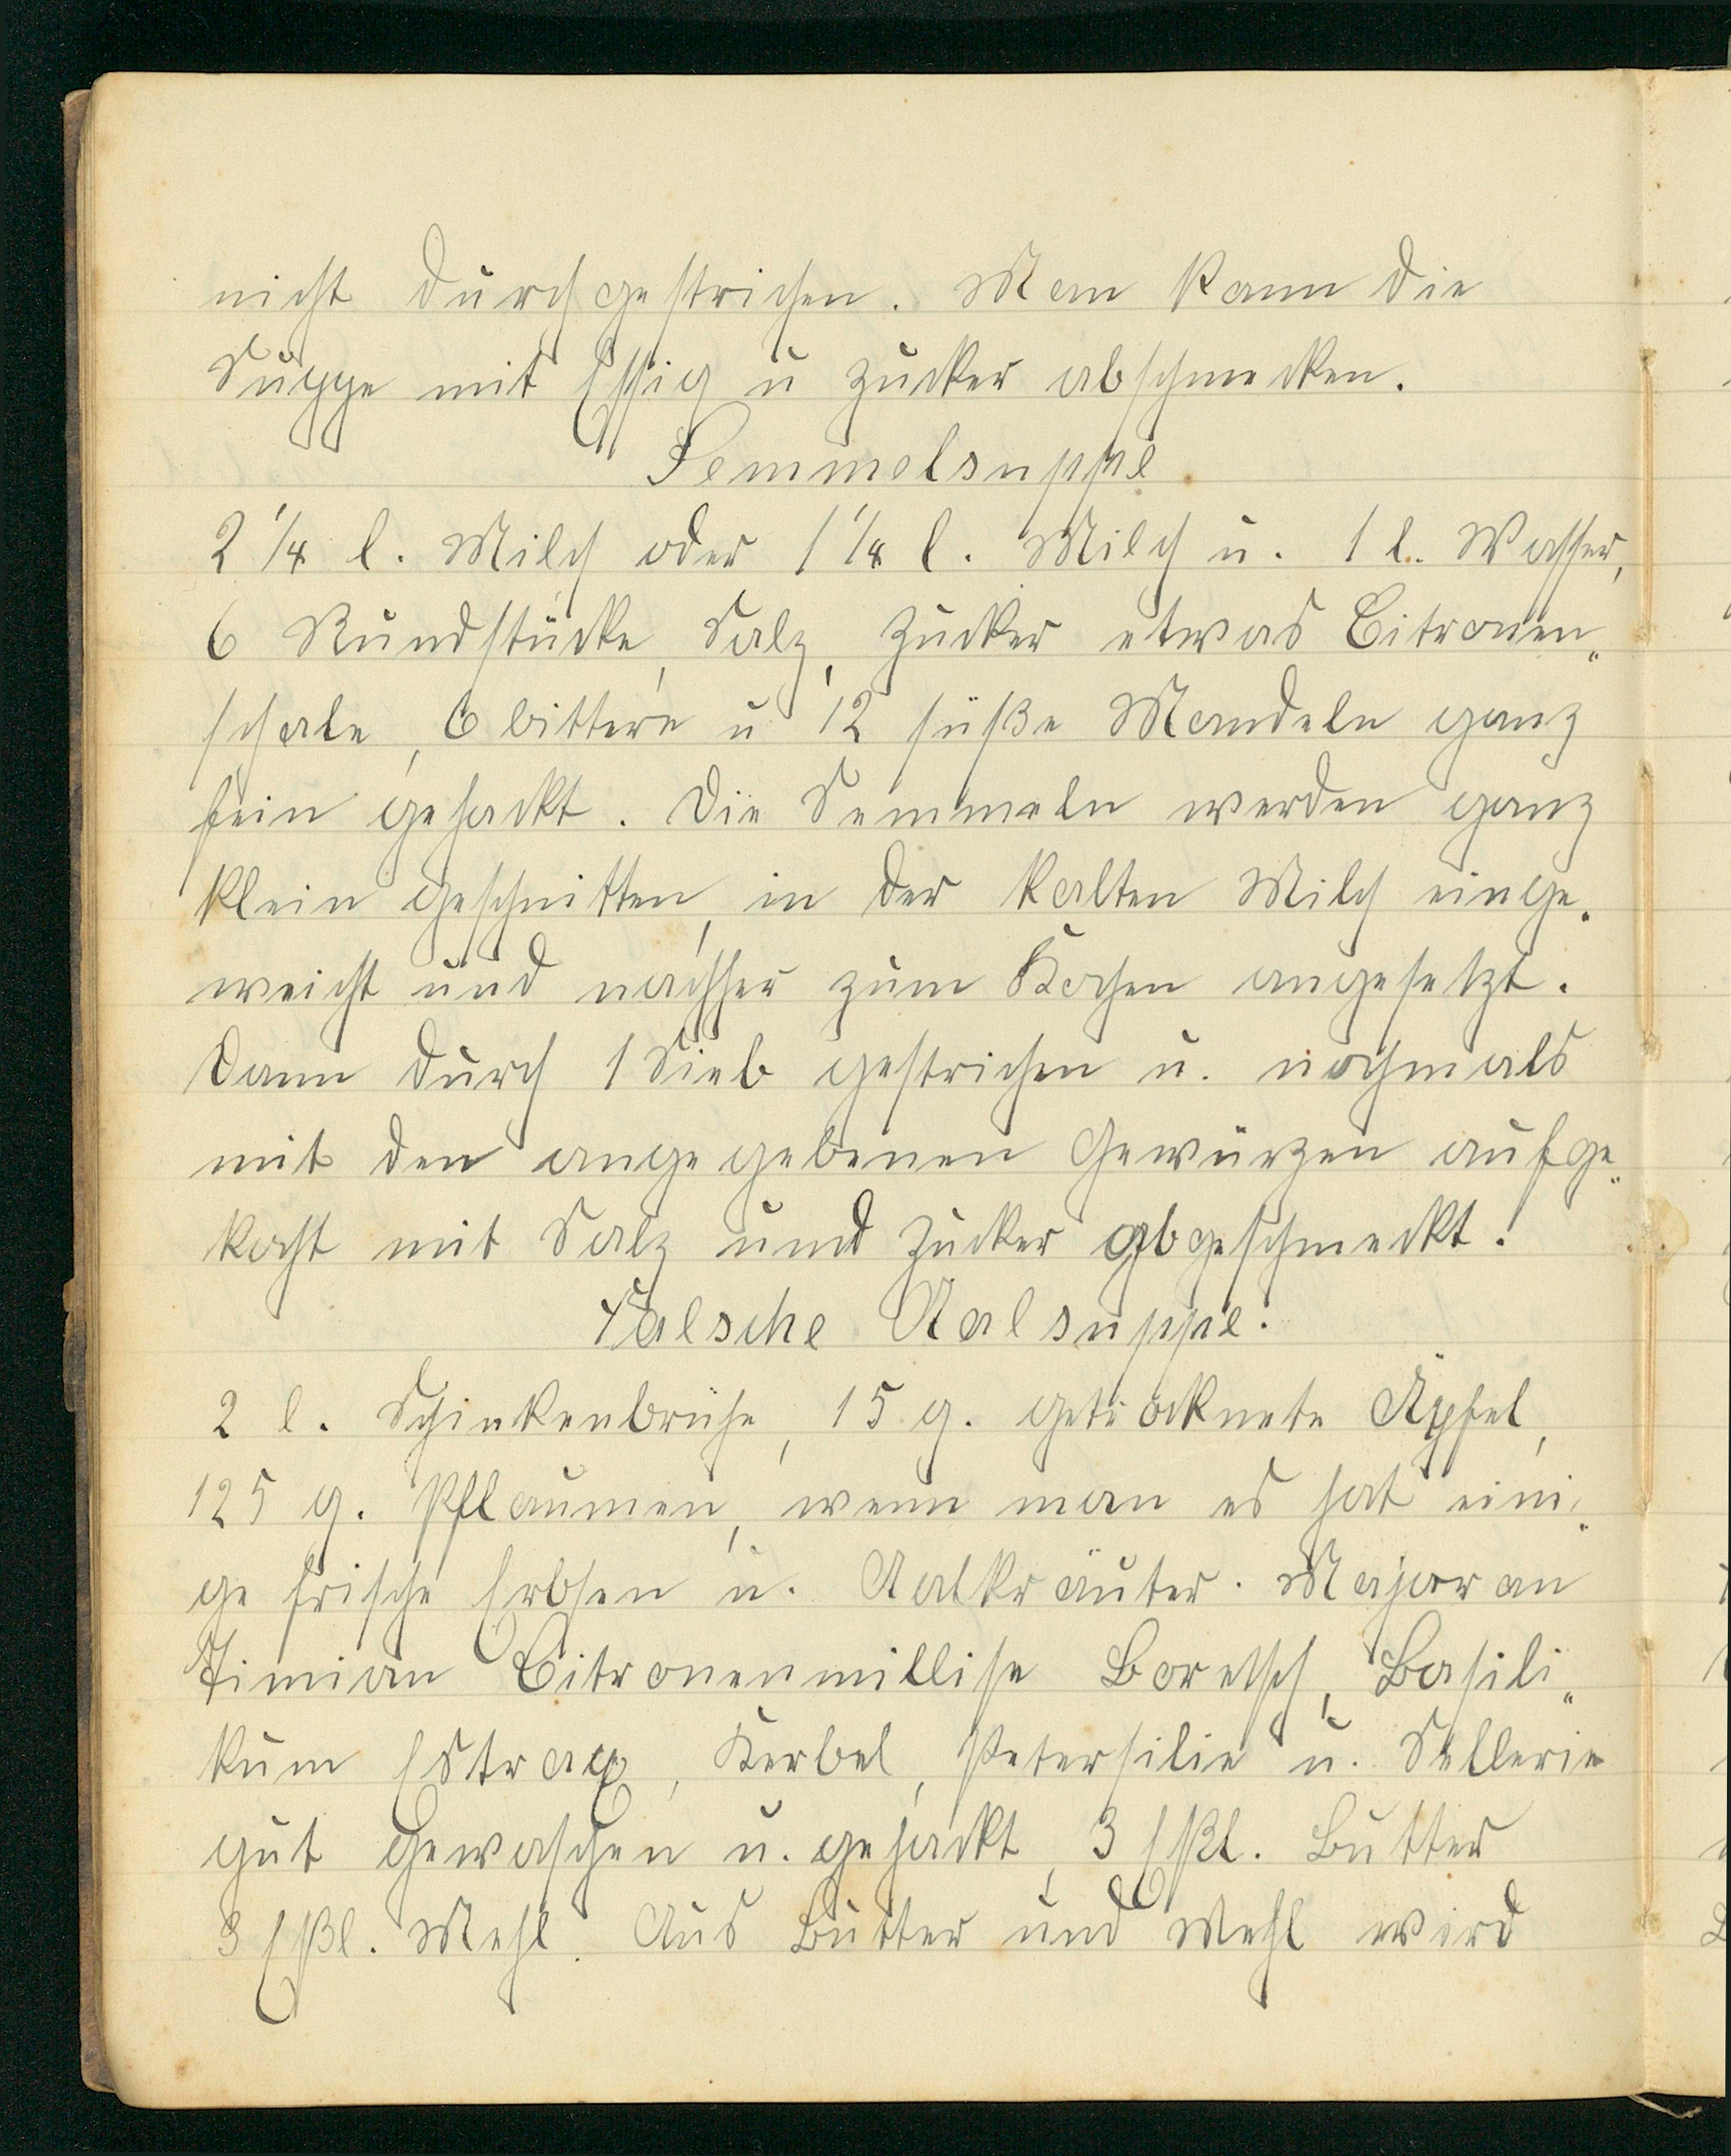 nicht durchgestrichen. Man kann die
Suppe mit Essig u Zucker abschmecken.
Semmelsuppe
2 1/4 l. Milch oder 1 1/4 l. Milch u. 1 l. Wasser,
6 Rundstücke, Salz, Zucker etwas Citronen„
schale, 6 bittere u 12 süße Mandeln ganz
fein gehackt. Die Semmeln werden ganz
klein geschnitten, in der kalten Milch einge„
weicht und nachher zum Kochen angesetzt.
Dann durch 1 Sieb gestrichen u. nochmals
mit den angegebenen Gewürzen aufge„
kocht mit Salz und Zucker abgeschmeckt.
Falsche Aalsuppe.
2 l. Schinkenbrühe, 15 g. getrocknete Äpfel,
125 g. Pflaumen, wenn man es hat eini„
ge frische Erbsen u. Aalkräuter. Majoran
Timian Citronenmillise Boretsch, Basili„
kum Estrag, Kerbel, Petersilie u. Sellerie
gut gewaschen u. gehackt, 3 Eßl. Butter
3 Eßl. Mehl. Aus Butter und Mehl wird